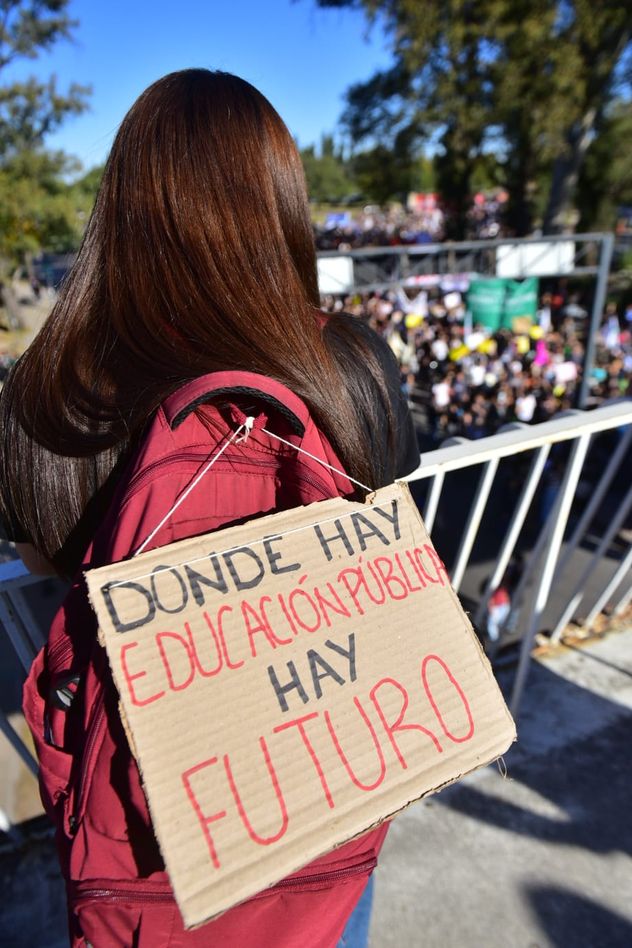 DONDE HAY
EDUCACIÓN PÚBLICA
HAY
FUTURO